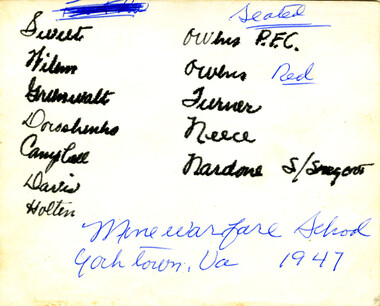 Seated
Swilt
Wilson
Greenwalt
Doroshenko
Campbell
Davis
Holten
Owens P.F.C.
Owens Red
Turner
Neece
Nardone S/Sergent
Mine warfare School
Yorktown, Va 1947